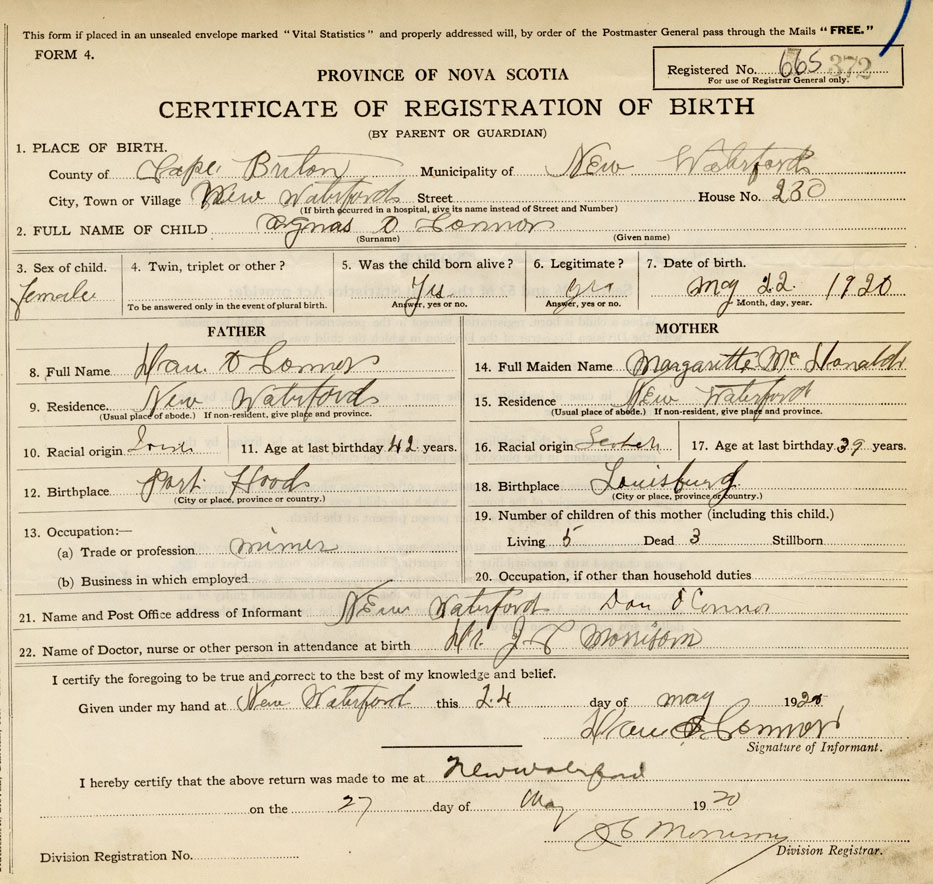 This form if placed in an unsealed envelope marked "Vital Statistics" and properly addressed will, by order of the Postmaster General pass through the Mails "FREE."
FORM 4.
Registered No. 665 372
For use of Registrar General only.
PROVINCE OF NOVA SCOTIA
CERTIFICATE OF REGISTRATION OF BIRTH
(BY PARENT OR GUARDIAN)
1. PLACE OF BIRTH.
County of Cape Briton Municipality of New Waterford
City, Town or Village New Waterford Street House No. 230
(If birth occurred in a hospital, give its name instead of Street and Number)
2. FULL NAME OF CHILD Agnas O Connor
(Surname) (Given name)
3. Sex of child. 4. Twin, triplet or other? 5. Was the child born alive? 6. Legitimate? 7. Date of birth.
female Yes yes May 22 1920
To be answered only in the event of plural birth. Answer, yes or no. Answer, yes or no. Month, day, year.
FATHER MOTHER
8. Full Name Dan O Connor 14. Full Maiden Name Margarette Mc Donald
9. Residence. New Waterford 15. Residence New Waterford
(Usual place of abode.) If non-resident, give place and province. (Usual place of abode.) If non-resident, give place and province.
10. Racial origin Irish 11. Age at last birthday 42 years. 16. Racial origin Scotch 17. Age at last birthday 39 years.
12. Birthplace Port Hood 18. Birthplace Louisburg
(City or place, province or country.) (City or place, province or country.)
13. Occupation:— 19. Number of children of this mother (including this child.)
(a) Trade or profession miner Living 5 Dead 3 Stillborn
(b) Business in which employed 20. Occupation, if other than household duties
21. Name and Post Office address of Informant New Waterford Dan O'Connor
22. Name of Doctor, nurse or other person in attendance at birth Dr. J. C Morrison
I certify the foregoing to be true and correct to the best of my knowledge and belief.
Given under my hand at New Waterford this 24 day of may 1920
Dan O Connor
Signature of Informant.
I hereby certify that the above return was made to me at New Waterford
on the 27 day of May 1920
Morrison
Division Registrar.
Division Registration No.